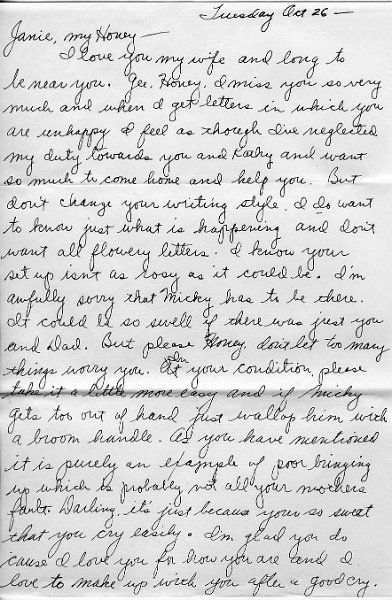 Tuesday Oct 26 —
Janie, my Honey —
I love you my wife and long to
be near you. Gee, Honey, I miss you so very
much and when I get letters in which you
are unhappy I feel as though I've neglected
my duty towards you and and want
so much to come home and help you. But
don't change your writing style. I do want
to know just what is happening and don't
want all flowery letters. I know your
set up isn't as rosy as it could be. I'm
awfully sorry that Micky has to be there.
It could be so swell if there was just you
and Dad. But please Honey, don't let too many
things worry you. In your condition, please
take it a little more easy and if Micky
gets too out of hand just wallop him with
a broom handle. As you have mentioned
it is purely an example of poor bringing
up which is probably not all your mothers
fault. Darling, it's just because your so sweet
that you cry easily. I'm glad you do
cause I love you for how you are and I
love to make up with you after a good cry.